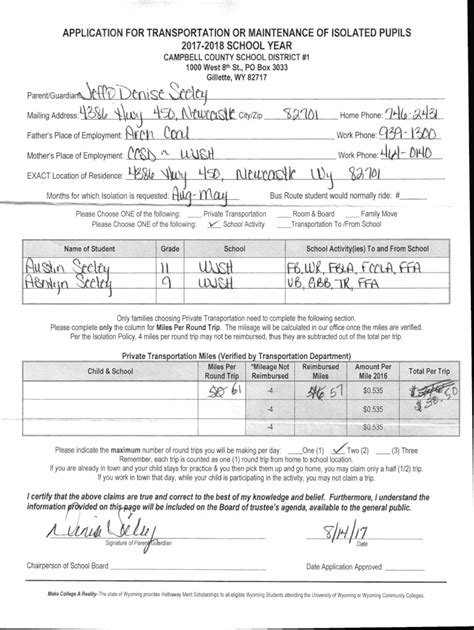 APPLICATION FOR TRANSPORTATION OR MAINTENANCE OF ISOLATED PUPILS
2017-2018 SCHOOL YEAR
CAMPBELL COUNTY SCHOOL DISTRICT #1
1000 West 8th St., PO Box 3033
Gillette, WY 82717
Parent/Guardian Jeff & Denise Seeley
Mailing Address: 4386 Hwy 450, Newcastle City/Zip 82701 Home Phone: 746-2431
Father's Place of Employment: Arch Coal Work Phone: 939-1300
Mother's Place of Employment: CCSD - WJSH Work Phone: 464-0140
EXACT Location of Residence: 4386 Hwy 450, Newcastle Wy 82701
Months for which Isolation is requested: Aug-May Bus Route student would normally ride: #
Please Choose ONE of the following: Private Transportation Room & Board Family Move
Please Choose ONE of the following: ✓ School Activity Transportation To /From School
Name of Student Grade School School Activity(ies) To and From School
Austin Seeley 11 WJSH FB, WR, FBLA, FCCLA, FFA
Seeley 9 WJSH VB, GBB, TR, FFA
Only families choosing Private Transportation need to complete the following section.
Please complete only the column for Miles Per Round Trip. The mileage will be calculated in our office once the miles are verified.
Per the Isolation Policy, 4 miles per round trip may not be reimbursed, thus they are subtracted out of the total per trip.
Private Transportation Miles (Verified by Transportation Department)
Child & School Miles Per Round Trip *Mileage Not Reimbursed Reimbursed Miles Amount Per Mile 2016 Total Per Trip
61 -4 57 $0.535 $30.50
-4 $0.535
-4 $0.535
Please indicate the maximum number of round trips you will be making per day: One (1) ✓ Two (2) (3) Three
Remember, each trip is counted as one (1) round trip from home to school location.
If you are already in town and your child stays for practice & you then pick them up and go home, you may claim only a half (1/2) trip.
If you work in town that day, while your child is participating in an activity, you may not claim that trip.
I certify that the above claims are true and correct to the best of my knowledge and belief. Furthermore, I understand the
information provided on this page will be included on the Board of trustee's agenda, available to the general public.
Denise Seeley 8/14/17
Signature of Parent/Guardian Date
Chairperson of School Board Date Application Approved
Make College A Reality-The state of Wyoming provides Hathaway Merit Scholarships to all eligible Wyoming Students attending the University of Wyoming or Wyoming Community Colleges.